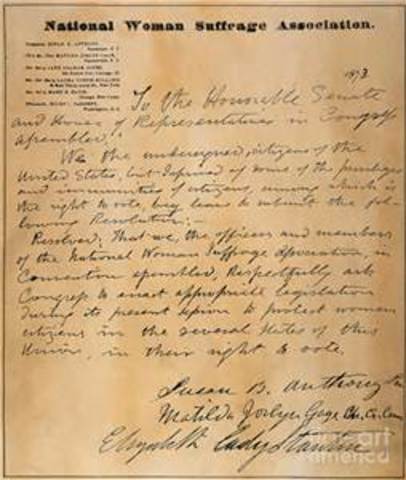 National Woman Suffrage Association.
1873
To the Honorable Senate
and House of Representatives in Congress
assembled:
We the undersigned, citizens of the
United States, but deprived of some of the privileges
and immunities of citizens, among which is
the right to vote, beg leave to submit the fol-
lowing Resolution:—
Resolved; That we, the officers and members
of the National Woman Suffrage Association, in
Convention assembled, Respectfully ask
Congress to enact appropriate legislation
during its present session to protect women
citizens in the several States of this
Union, in their right to vote.
Susan B. Anthony
Matilda Joslyn Gage Ch. Ex. Com
Elizabeth Cady Stanton
fine art
america